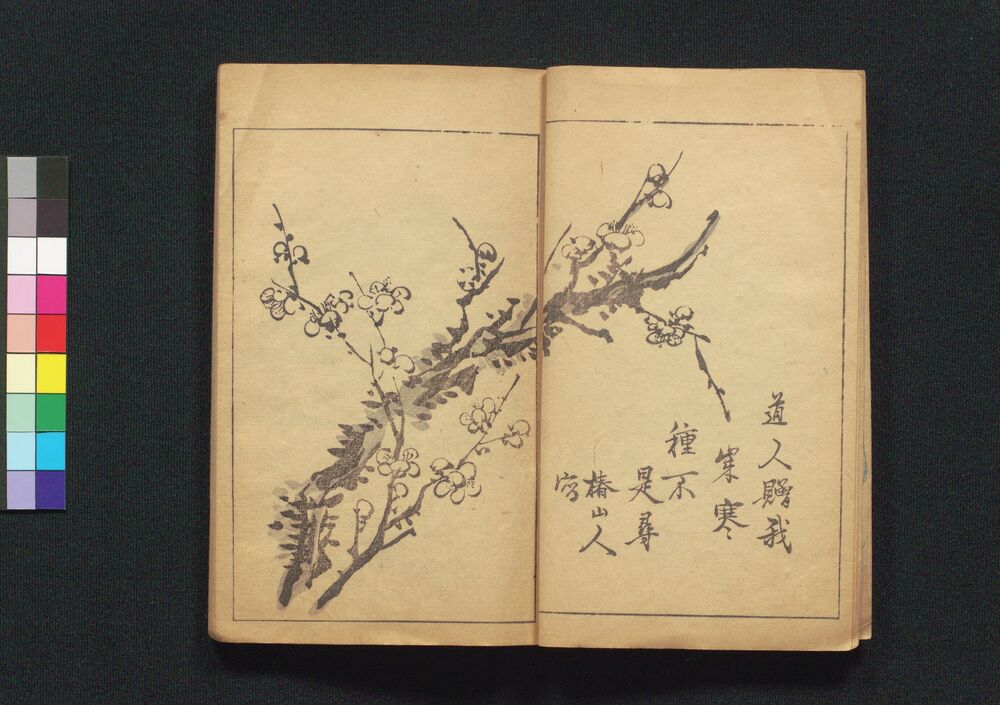 道人贈我
歳寒
種不
是尋
椿山人
寫